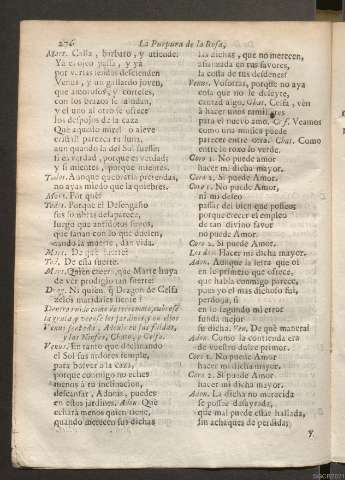 276 La Purpura de la Rosa,
Mart. Calla, barbaro, y atiende.
Ya es otro passa, y yà
por verdes sendas descienden
Venus, y un gallardo joven,
que amorosos, y corteses,
con los brazos se saludan,
y el uno al otro se ofrece
los despojos de la caza
Què aquello miro! ò aleve
cristal! parece tu luna,
aun quando la del Sol fuesse;
si es verdad, porque es verdad;
y si mientes, porque mientes.
Todos. Aunque quebrarla pretendas,
no ayas miedo que la quiebres.
Mart. Por què?
Todos. Porque el Desengaño
sus sombras desaparece,
luego que antidotos suyos,
que sanan con lo que duelen,
dando la muerte, dan vida.
Mart. De què suerte?
Tod. De esta suerte.
Mart. Quien creerà, que Marte huya
de ver prodigio tan fuerte!
Drag. Ni quien, q̃ Dragon de Celfa
zelos maridales siente!
Dentro ruido como de terremoto, subese
la gruta y buelve los jardines, y en ellos
Venus sentada, Adonis en sus faldas,
y las Ninfas, Chato, y Celfa.
Venus. En tanto que declinando
el Sol sus ardores temple,
para bolver a la caza,
porque conmigo no eches
menos à tu inclinacion,
descansar, Adonis, puedes
en estos jardines. Adon. Què
echarà menos quien tiene,
quando merecen sus dichas
las dichas, que no merecen,
afianzada en tus favores,
la costa de sus desdenes?
Venus. Vosotras, porque no aya
cosa que no le deleyte,
cantad algo. Chat. Celfa, vèn
à hacer unos ramilletes
para el nuevo amo. Celf. Veamos
como una musica puede
parecer entre otra. Chat. Como
entre lo roxo lo verde.
Coro 1. No puede amor
hacer mi dicha mayor.
Coro 2. Si puede Amor.
Coro 1. No puede Amor,
ni mi deseo
passar del bien que posseo;
porque crecer el empleo
de tan divino favor
no puede Amor.
Coro 2. Si puede Amor.
Los dos. Hacer mi dicha mayor.
Adon. Aunque la letra que oì
en lo primero que ofrece,
que habla conmigo parece,
pues yo el mas dichoso fui,
perdona, si
en lo segundo mi error
funda mejor
su dicha. Ven. De què manera?
Adon. Como la contienda era
de vuestro dulce primor.
Coro 1. No puede Amor
hacer mi dicha mayor.
Coro 2. Si puede Amor
hacer mi dicha mayor.
Adon. La dicha no merecida
se posee desayrada,
que mal puede estar hallada,
sin achaques de perdida;
y